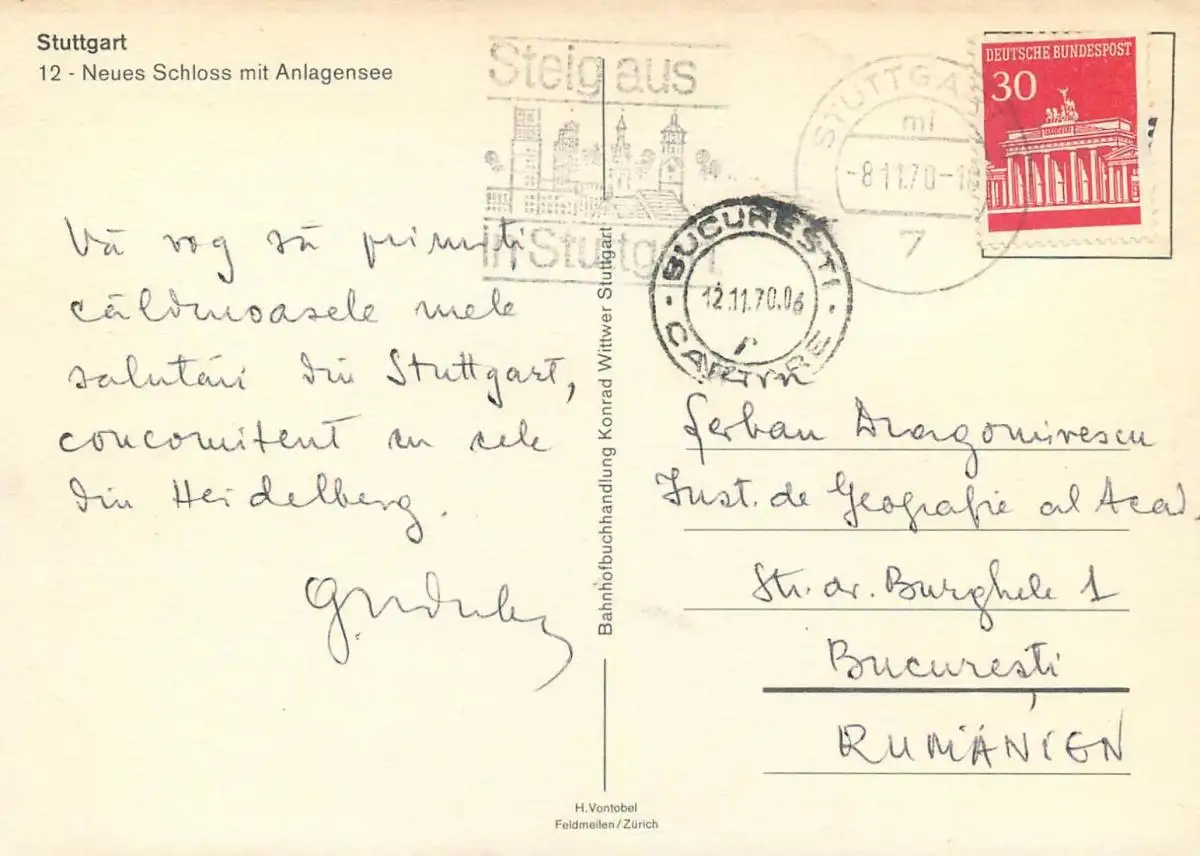 Stuttgart
12 - Neues Schloss mit Anlagensee
Steig aus
in Stuttgart
STUTTGA
mi
-8.11.70-
7
DEUTSCHE BUNDESPOST
30
BUCUREȘTI
12.11.70.06
CARTARE
Vă rog să primiți
călduroasele mele
salutări din Stuttgart,
concomitent cu cele
din Heidelberg.
Bahnhofbuchhandlung Konrad Wittwer Stuttgart
Șerban Dragomirescu
Inst. de Geografie al Acad.
Str. dr. Burghele 1
București
RUMÄNIEN
H. Vontobel
Feldmeilen/Zürich